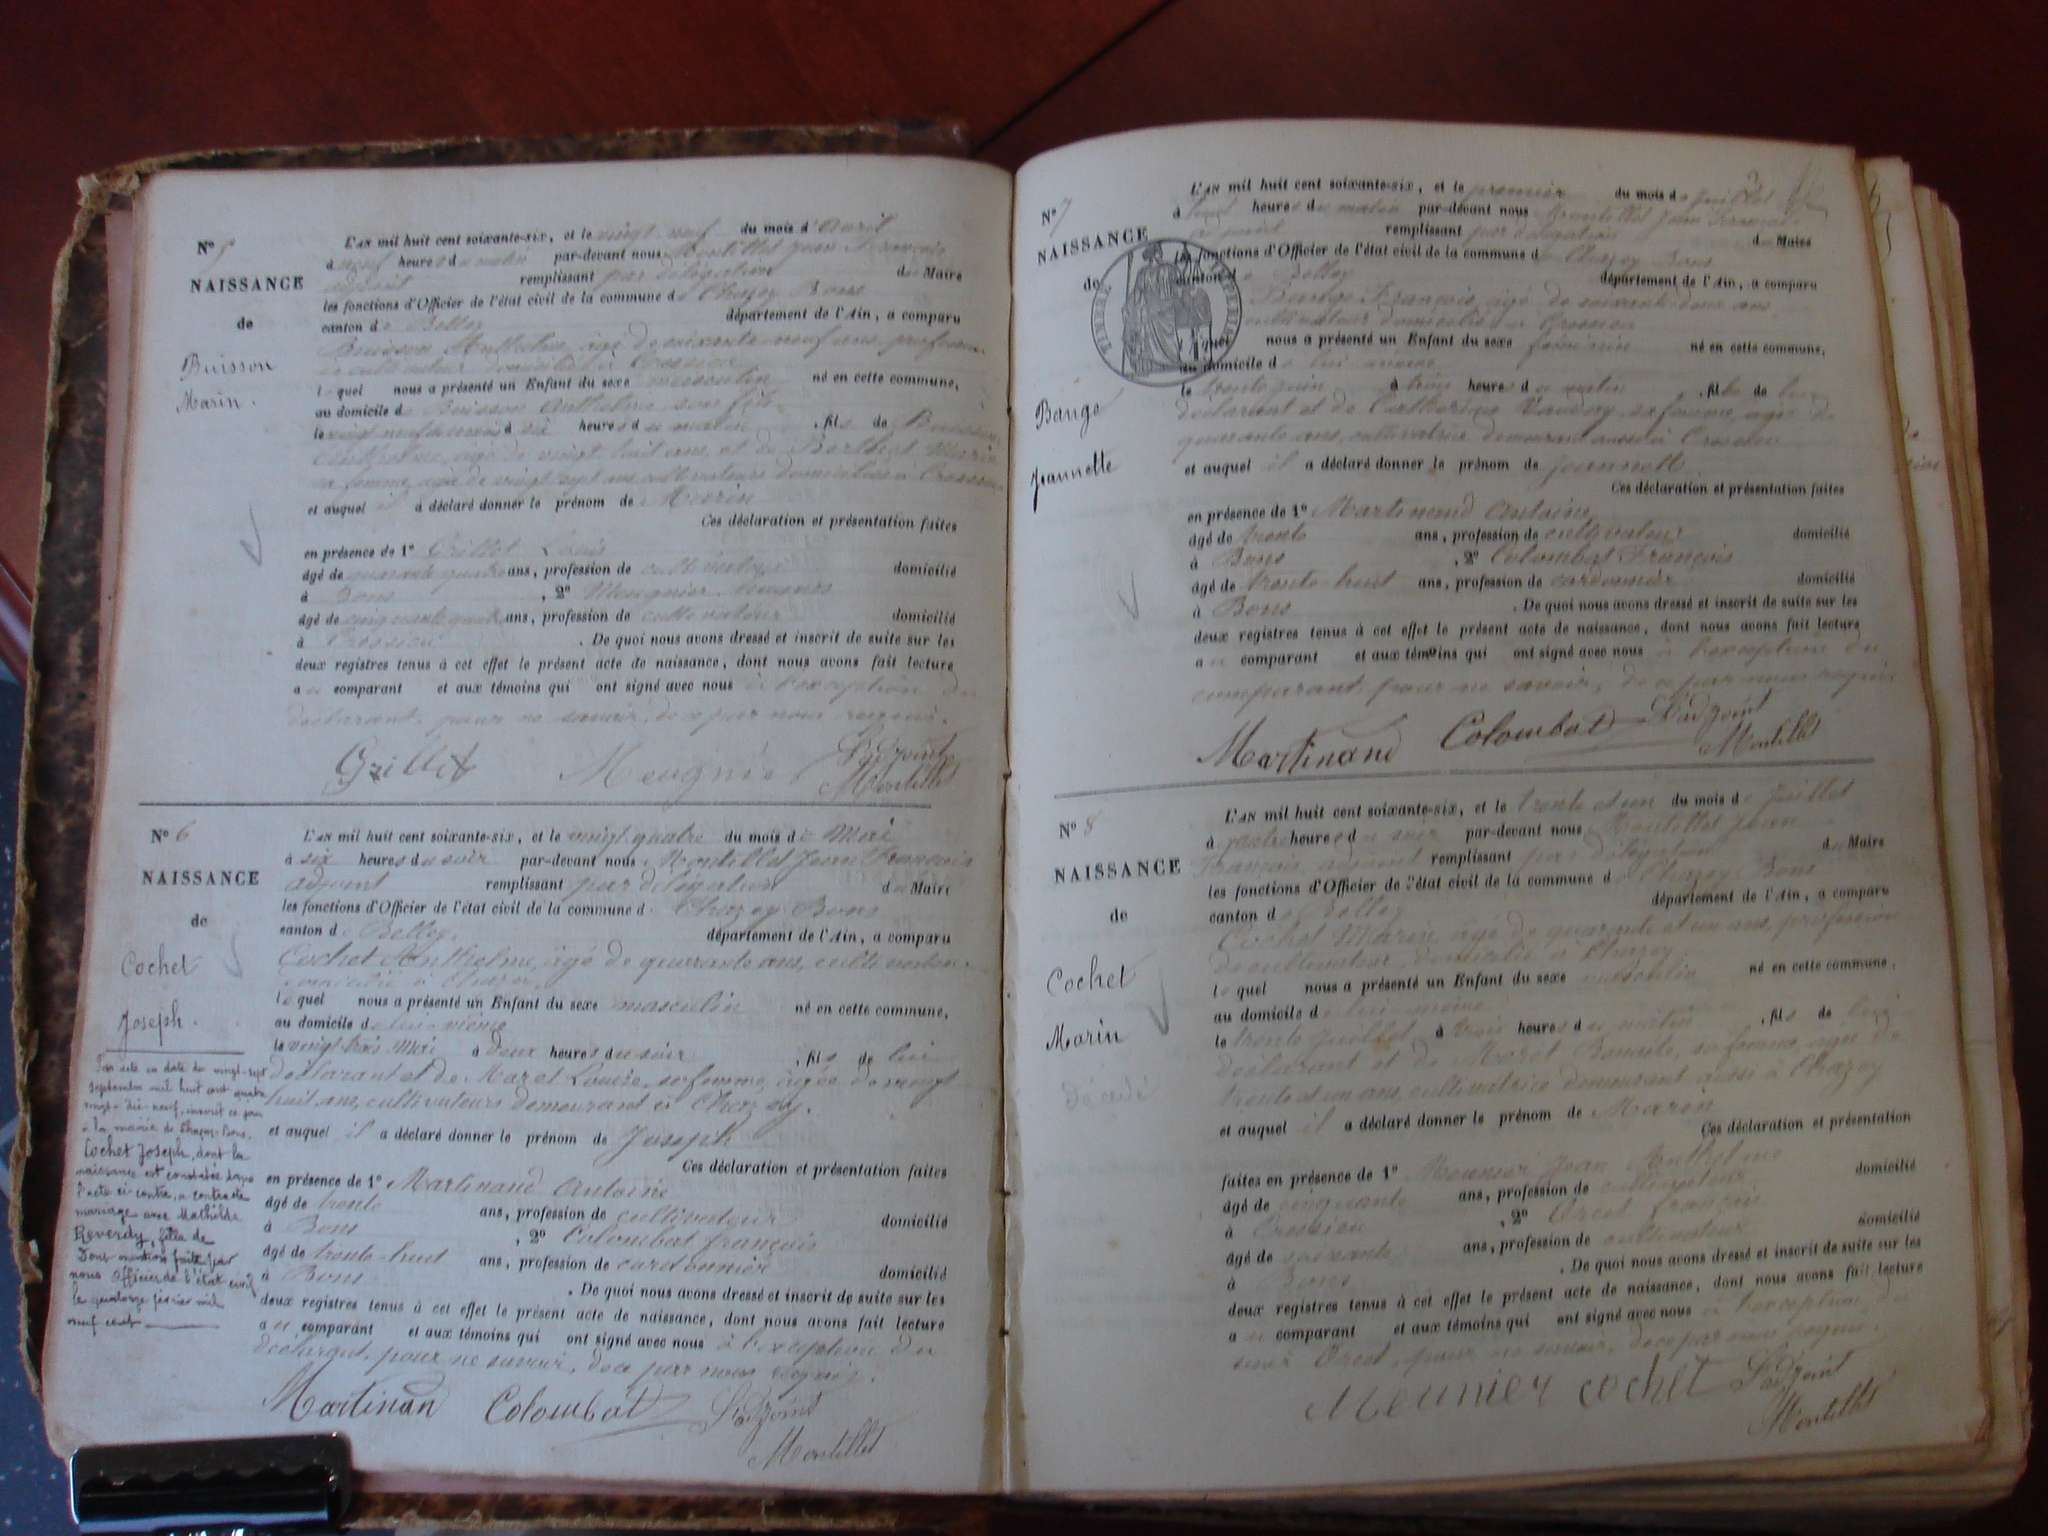 N° 5
NAISSANCE
de
Buisson
Marin.
L'AN mil huit cent soixante-six, et le vingt neuf du mois d'Avril
à neuf heures du matin par-devant nous Montillet Jean François
adjoint remplissant par délégation du Maire
les fonctions d'Officier de l'état civil de la commune de Chazey Bons
canton de Belley département de l'Ain, a comparu
Buisson Anthelme, âgé de soixante neuf ans, profession
de cultivateur domicilié à Crossieu
lequel nous a présenté un Enfant du sexe masculin né en cette commune,
au domicile de Buisson Anthelme son fils
le vingt neuf à six heures du matin, fils de Buisson
Anthelme, âgé de vingt huit ans, et de Berthet Marie
sa femme, âgée de vingt sept ans cultivateurs domiciliés à Crossieu
et auquel il a déclaré donner le prénom de Marin
Ces déclaration et présentation faites
en présence de 1° Grillet Louis
âgé de quarante quatre ans, profession de cultivateur domicilié
à Bons, 2° Meugnier
âgé de cinquante quatre ans, profession de cultivateur domicilié
à Crossieu. De quoi nous avons dressé et inscrit de suite sur les
deux registres tenus à cet effet le présent acte de naissance, dont nous avons fait lecture
au comparant et aux témoins qui ont signé avec nous à l'exception du
déclarant, pour ne savoir, de ce par nous requis.
Grillet Meugnier L'adjoint
Montillet
N° 6
NAISSANCE
de
Cochet
Joseph.
L'AN mil huit cent soixante-six, et le vingt quatre du mois de Mai
à six heures du soir par-devant nous Montillet Jean François
adjoint remplissant par délégation du Maire
les fonctions d'Officier de l'état civil de la commune de Chazey Bons
canton de Belley. département de l'Ain, a comparu
Cochet Anthelme, âgé de quarante ans, cultivateur
domicilié à Chazey
lequel nous a présenté un Enfant du sexe masculin né en cette commune,
au domicile de lui même
le vingt trois Mai à deux heures du soir, fils de lui
déclarant et de Maret Louise, sa femme, âgée de vingt
huit ans, cultivateurs demeurant à Chazey.
et auquel il a déclaré donner le prénom de Joseph
Ces déclaration et présentation faites
en présence de 1° Martinand Antoine
âgé de trente ans, profession de cultivateur domicilié
à Bons, 2° Colombat françois
âgé de trente-huit ans, profession de cordonnier domicilié
à Bons. De quoi nous avons dressé et inscrit de suite sur les
deux registres tenus à cet effet le présent acte de naissance, dont nous avons fait lecture
au comparant et aux témoins qui ont signé avec nous à l'exception du
déclarant, pour ne savoir, de ce par nous requis.
Martinan Colombat L'adjoint
Montillet
Par acte en date du vingt-sept
septembre mil huit cent quatre
vingt-dix-neuf, inscrit ce jour
à la mairie de Chazey-Bons,
Cochet Joseph, dont la
naissance est constatée dans
l'acte ci contre, a contracté
mariage avec Mathilde
Reverdy, fille de
Dont mention faite par
nous Officier de l'état civil
le quatorze février mil
neuf cent
N° 7
NAISSANCE
de
Bange
Jeannette
TIMBRE IMPERIAL
L'AN mil huit cent soixante-six, et le premier du mois de Juillet
à huit heures du matin par-devant nous Montillet Jean François
adjoint remplissant par délégation du Maire
les fonctions d'Officier de l'état civil de la commune de Chazey Bons
canton de Belley département de l'Ain, a comparu
Bange François, âgé de soixante deux ans
cultivateur domicilié à Crossieu
lequel nous a présenté un Enfant du sexe féminin né en cette commune,
au domicile de lui même
le trente juin à trois heures du matin, fille de lui
déclarant et de Catherine, sa femme, âgée de
quarante ans, cultivatrice demeurant aussi à Crossieu
et auquel il a déclaré donner le prénom de Jeannette
Ces déclaration et présentation faites
en présence de 1° Martinand Antoine
âgé de trente ans, profession de cultivateur domicilié
à Bons, 2° Colombat François
âgé de trente-huit ans, profession de cordonnier domicilié
à Bons. De quoi nous avons dressé et inscrit de suite sur les
deux registres tenus à cet effet le présent acte de naissance, dont nous avons fait lecture
au comparant et aux témoins qui ont signé avec nous à l'exception du
comparant, pour ne savoir, de ce par nous requis.
Martinand Colombat L'adjoint
Montillet
N° 8
NAISSANCE
de
Cochet
Marin
Décédé
L'AN mil huit cent soixante-six, et le trente et un du mois de Juillet
à quatre heures du soir par-devant nous Montillet Jean
François adjoint remplissant par délégation du Maire
les fonctions d'Officier de l'état civil de la commune de Chazey Bons
canton de Belley département de l'Ain, a comparu
Cochet Marin, âgé de quarante et un ans, profession
de cultivateur, domicilié à Chazey
lequel nous a présenté un Enfant du sexe masculin né en cette commune,
au domicile de lui même
le trente Juillet à trois heures du matin, fils de lui
déclarant et de Moret Benoite, sa femme, âgée de
trente et un ans, cultivatrice demeurant aussi à Chazey
et auquel il a déclaré donner le prénom de Marin
Ces déclaration et présentation
faites en présence de 1° Meunier Jean Anthelme
âgé de cinquante ans, profession de cultivateur domicilié
à Crossieu, 2° Orcet François
âgé de soixante ans, profession de cultivateur domicilié
à Bons. De quoi nous avons dressé et inscrit de suite sur les
deux registres tenus à cet effet le présent acte de naissance, dont nous avons fait lecture
au comparant et aux témoins qui ont signé avec nous à l'exception du
sieur Orcet, pour ne savoir, de ce par nous requis.
Meunier cochet L'adjoint
Montillet